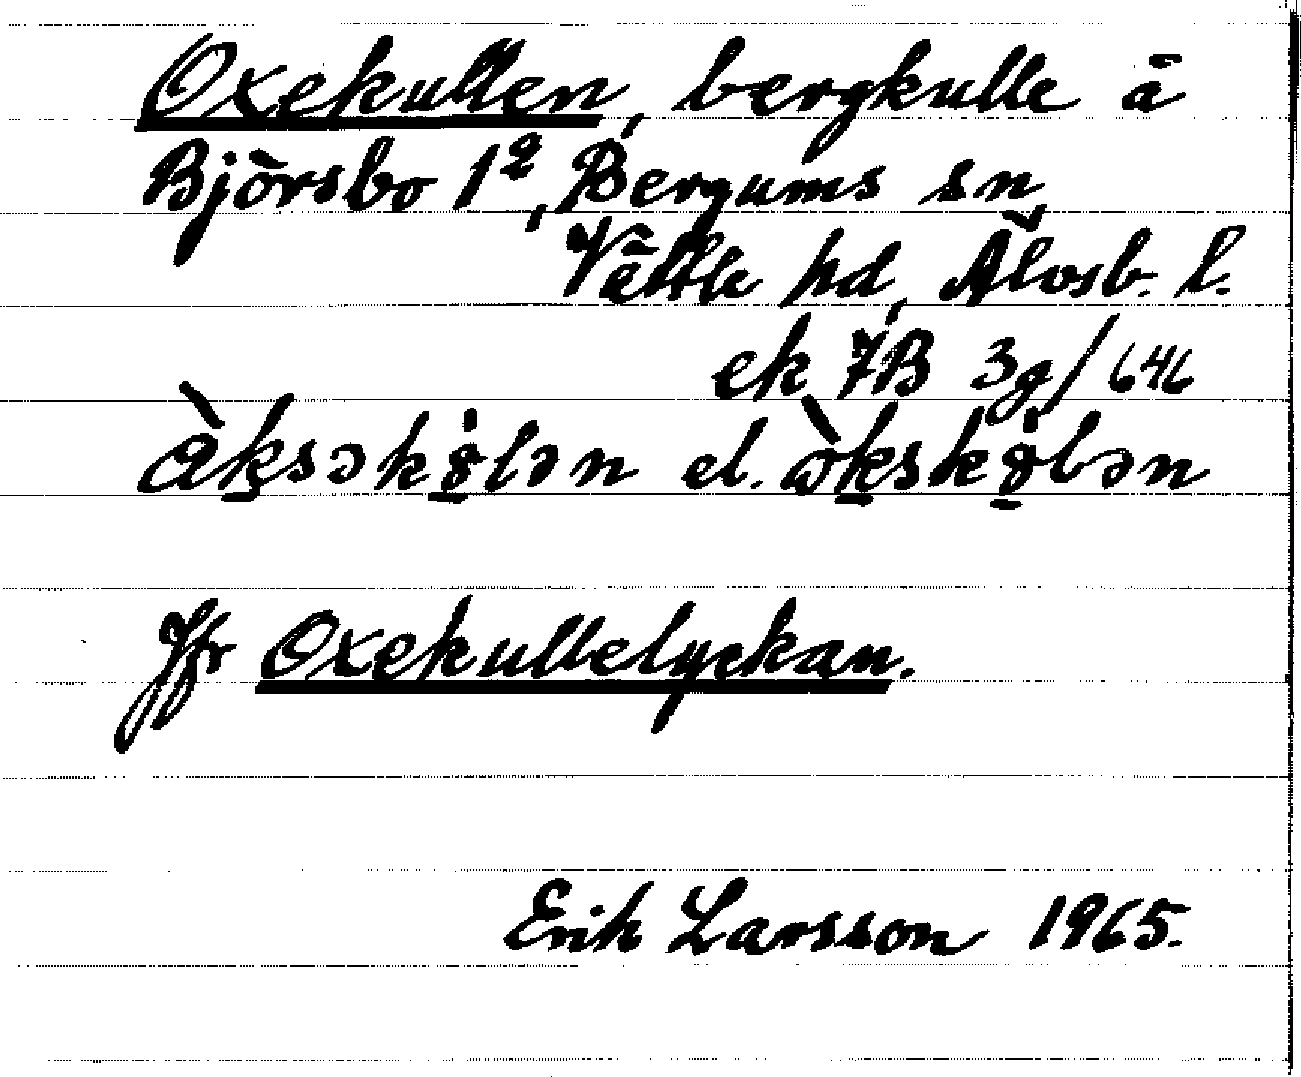 Oxekullen, bergkulle å
Björsbo 1², Bergums sn,
Vättle hd, Älvsb. l.
ek 7B 3g/646
Jfr Oxekullelyckan.
Erik Larsson 1965.